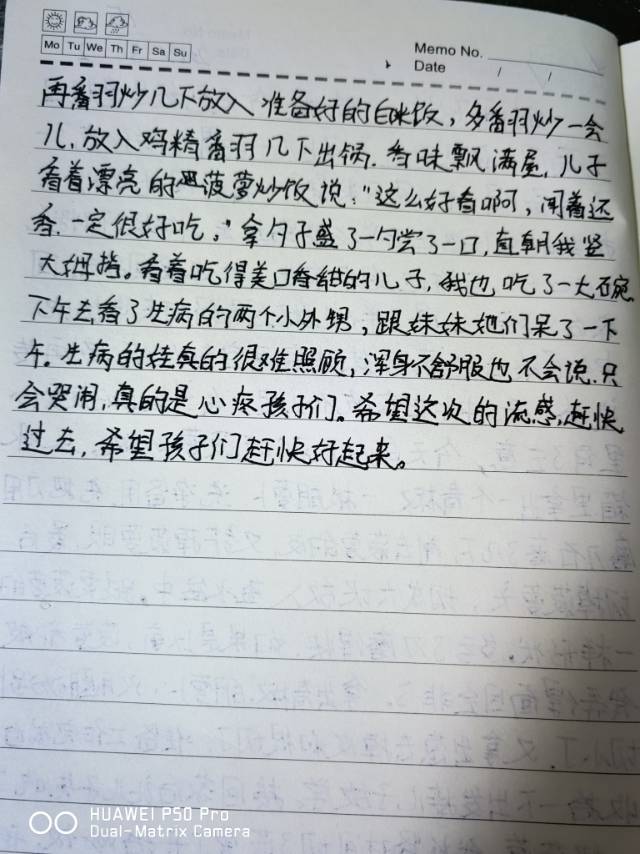 Mo Tu We Th Fr Sa Su
Memo No.
Date / /
再番羽炒几下放入准备好的白米饭，多番羽炒一会
儿，放入鸡精番羽几下出锅。香味飘满屋，儿子
看着漂亮的菠萝炒饭说："这么好看啊，闻着还
香，一定很好吃，"拿勺子盛了一勺尝了一口，直朝我竖
大姆指。看着吃得美口香甜的儿子，我也吃了一大碗。
下午去看了生病的两个小外甥，跟妹妹她们呆了一下
午。生病的娃真的很难照顾，浑身不舒服也不会说，只
会哭闹，真的是心疼孩子们。希望这次的流感，赶快
过去，希望孩子们赶快好起来。
HUAWEI P50 Pro
Dual-Matrix Camera